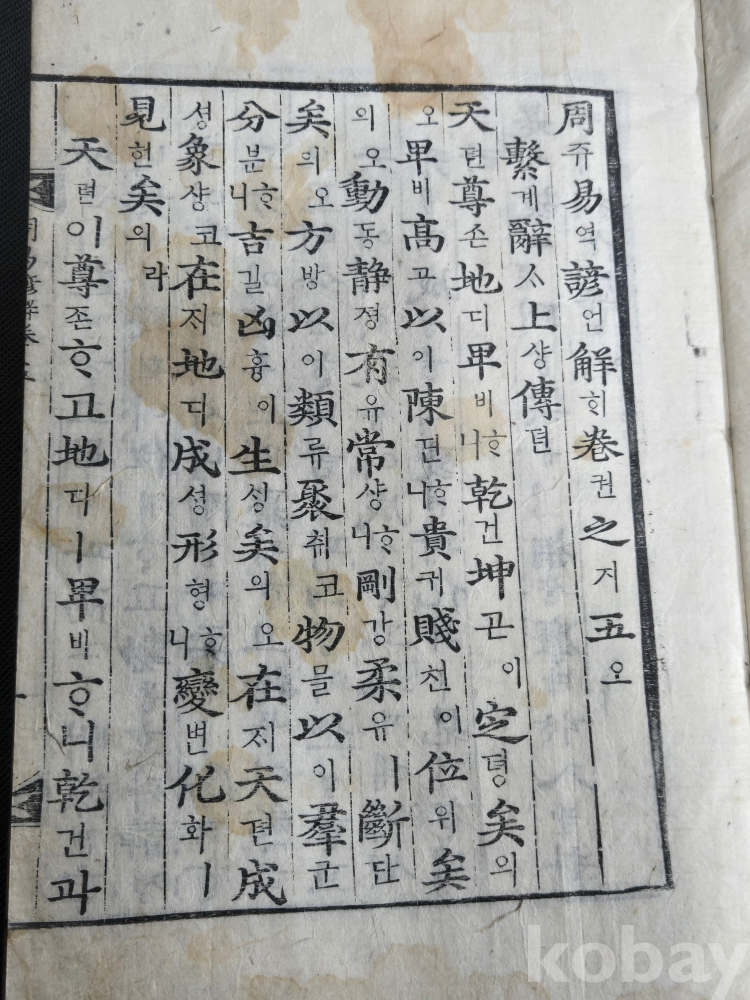 周쥬易역諺언解ᄒᆡ卷권之지五오
繫계辭ᄉᆞ上샹傳뎐
天텬尊존地디卑비ᄒᆞ니乾건坤곤이定뎡矣의
오卑비高고以이陳딘ᄒᆞ니貴귀賤쳔이位위矣
의오動동静졍有유常샹ᄒᆞ니剛강柔유ㅣ斷단
矣의오方방以이類류聚취코物믈以이羣군
分분ᄒᆞ니吉길凶흉이生ᄉᆡᆼ矣의오在ᄌᆡ天텬成
셩象샹코在ᄌᆡ地디成셩形형ᄒᆞ니變변化화ㅣ
見현矣의라
天텬이尊존ᄒᆞ고地디ㅣ卑비ᄒᆞ니乾건과
kobay